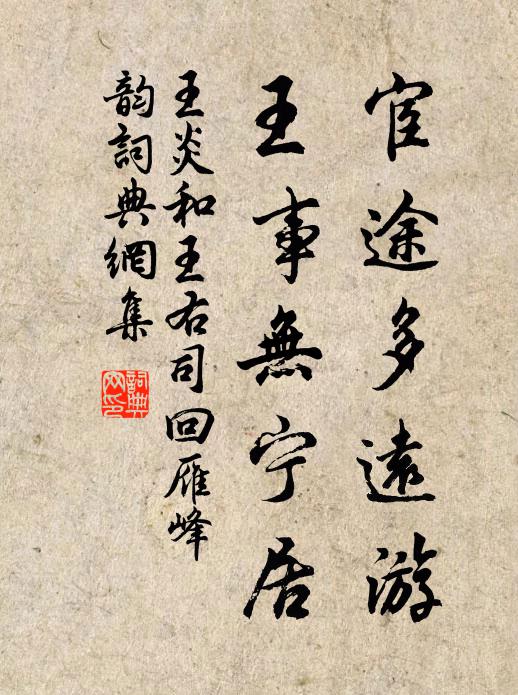 宦途多遠游
王事無宁居
王炎和王右司回雁峰
韵詞典網集
詞典网印